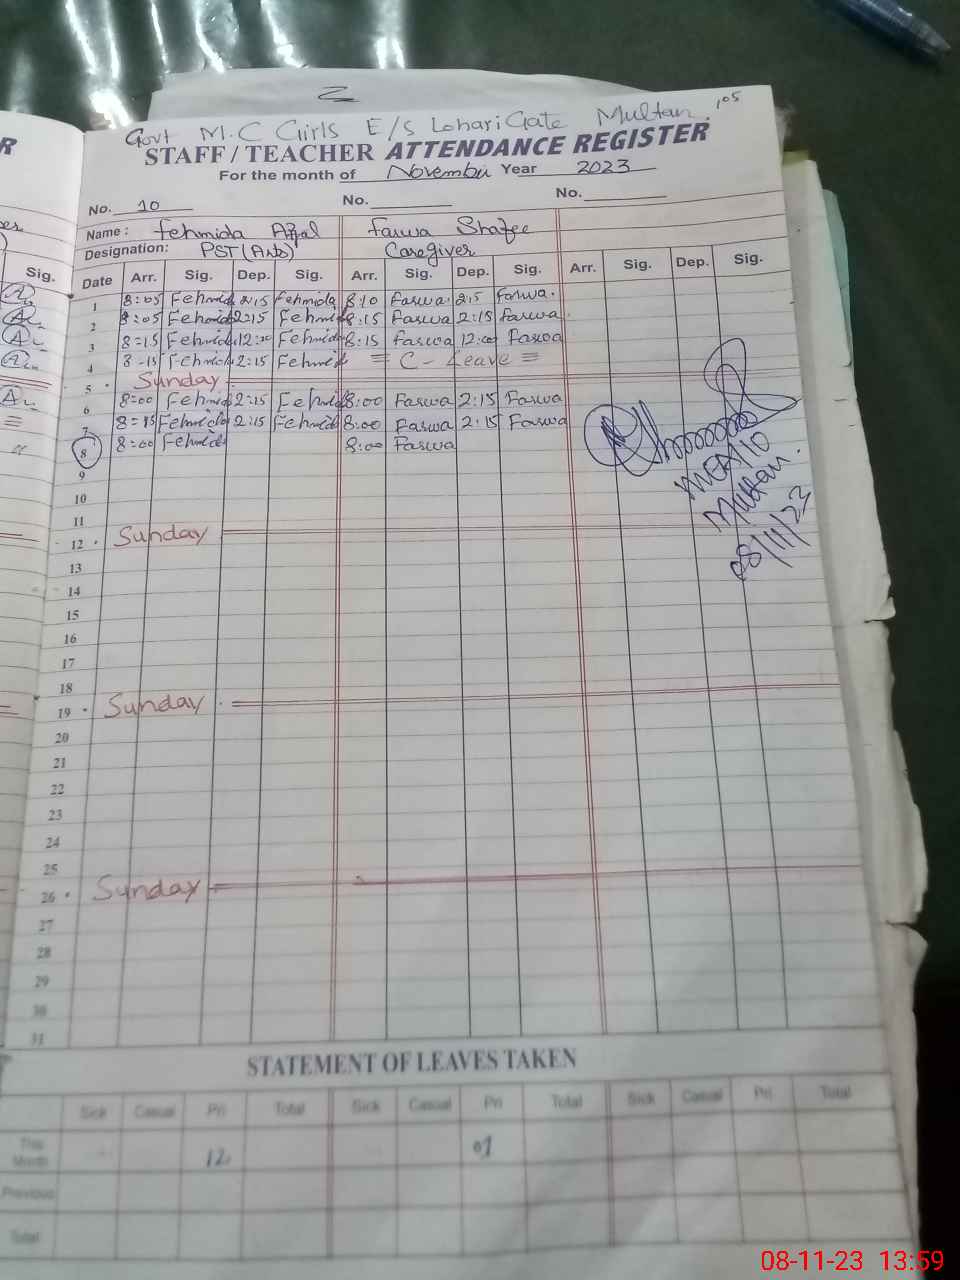 Govt M.C Girls E/S Lohari Gate Multan.
STAFF / TEACHER ATTENDANCE REGISTER
For the month of November Year 2023
No. 10 No. No.
Name: Fehmida Afzal Farwa Shafee
Designation: PST (Arb) Caregiver
Sig. Date Arr. Sig. Dep. Sig. Arr. Sig. Dep. Sig. Arr. Sig. Dep. Sig.
1 8:05 Fehmida 2:15 Fehmida 8:10 Farwa 2:15 Farwa.
2 8:05 Fehmida 2:15 Fehmida 8:15 Farwa 2:15 Farwa
3 8:15 Fehmida 12:00 Fehmida 8:15 Farwa 12:00 Farwa
4 8:15 Fehmida 2:15 Fehmida C - Leave
5 Sunday
6 8:00 Fehmida 2:15 Fehmida 8:00 Farwa 2:15 Farwa
7 8:15 Fehmida 2:15 Fehmida 8:00 Farwa 2:15 Farwa
8 8:00 Fehmida 8:00 Farwa
9
10
11
12 Sunday
13
14
15
16
17
18
19 Sunday
20
21
22
23
24
25
26 Sunday
27
28
29
30
31
Multan.
08/11/23
STATEMENT OF LEAVES TAKEN
Sick Casual Pri Total Sick Casual Pri Total Sick Casual Pri Total
This Month 12 01
Previous
Total
08-11-23 13:59